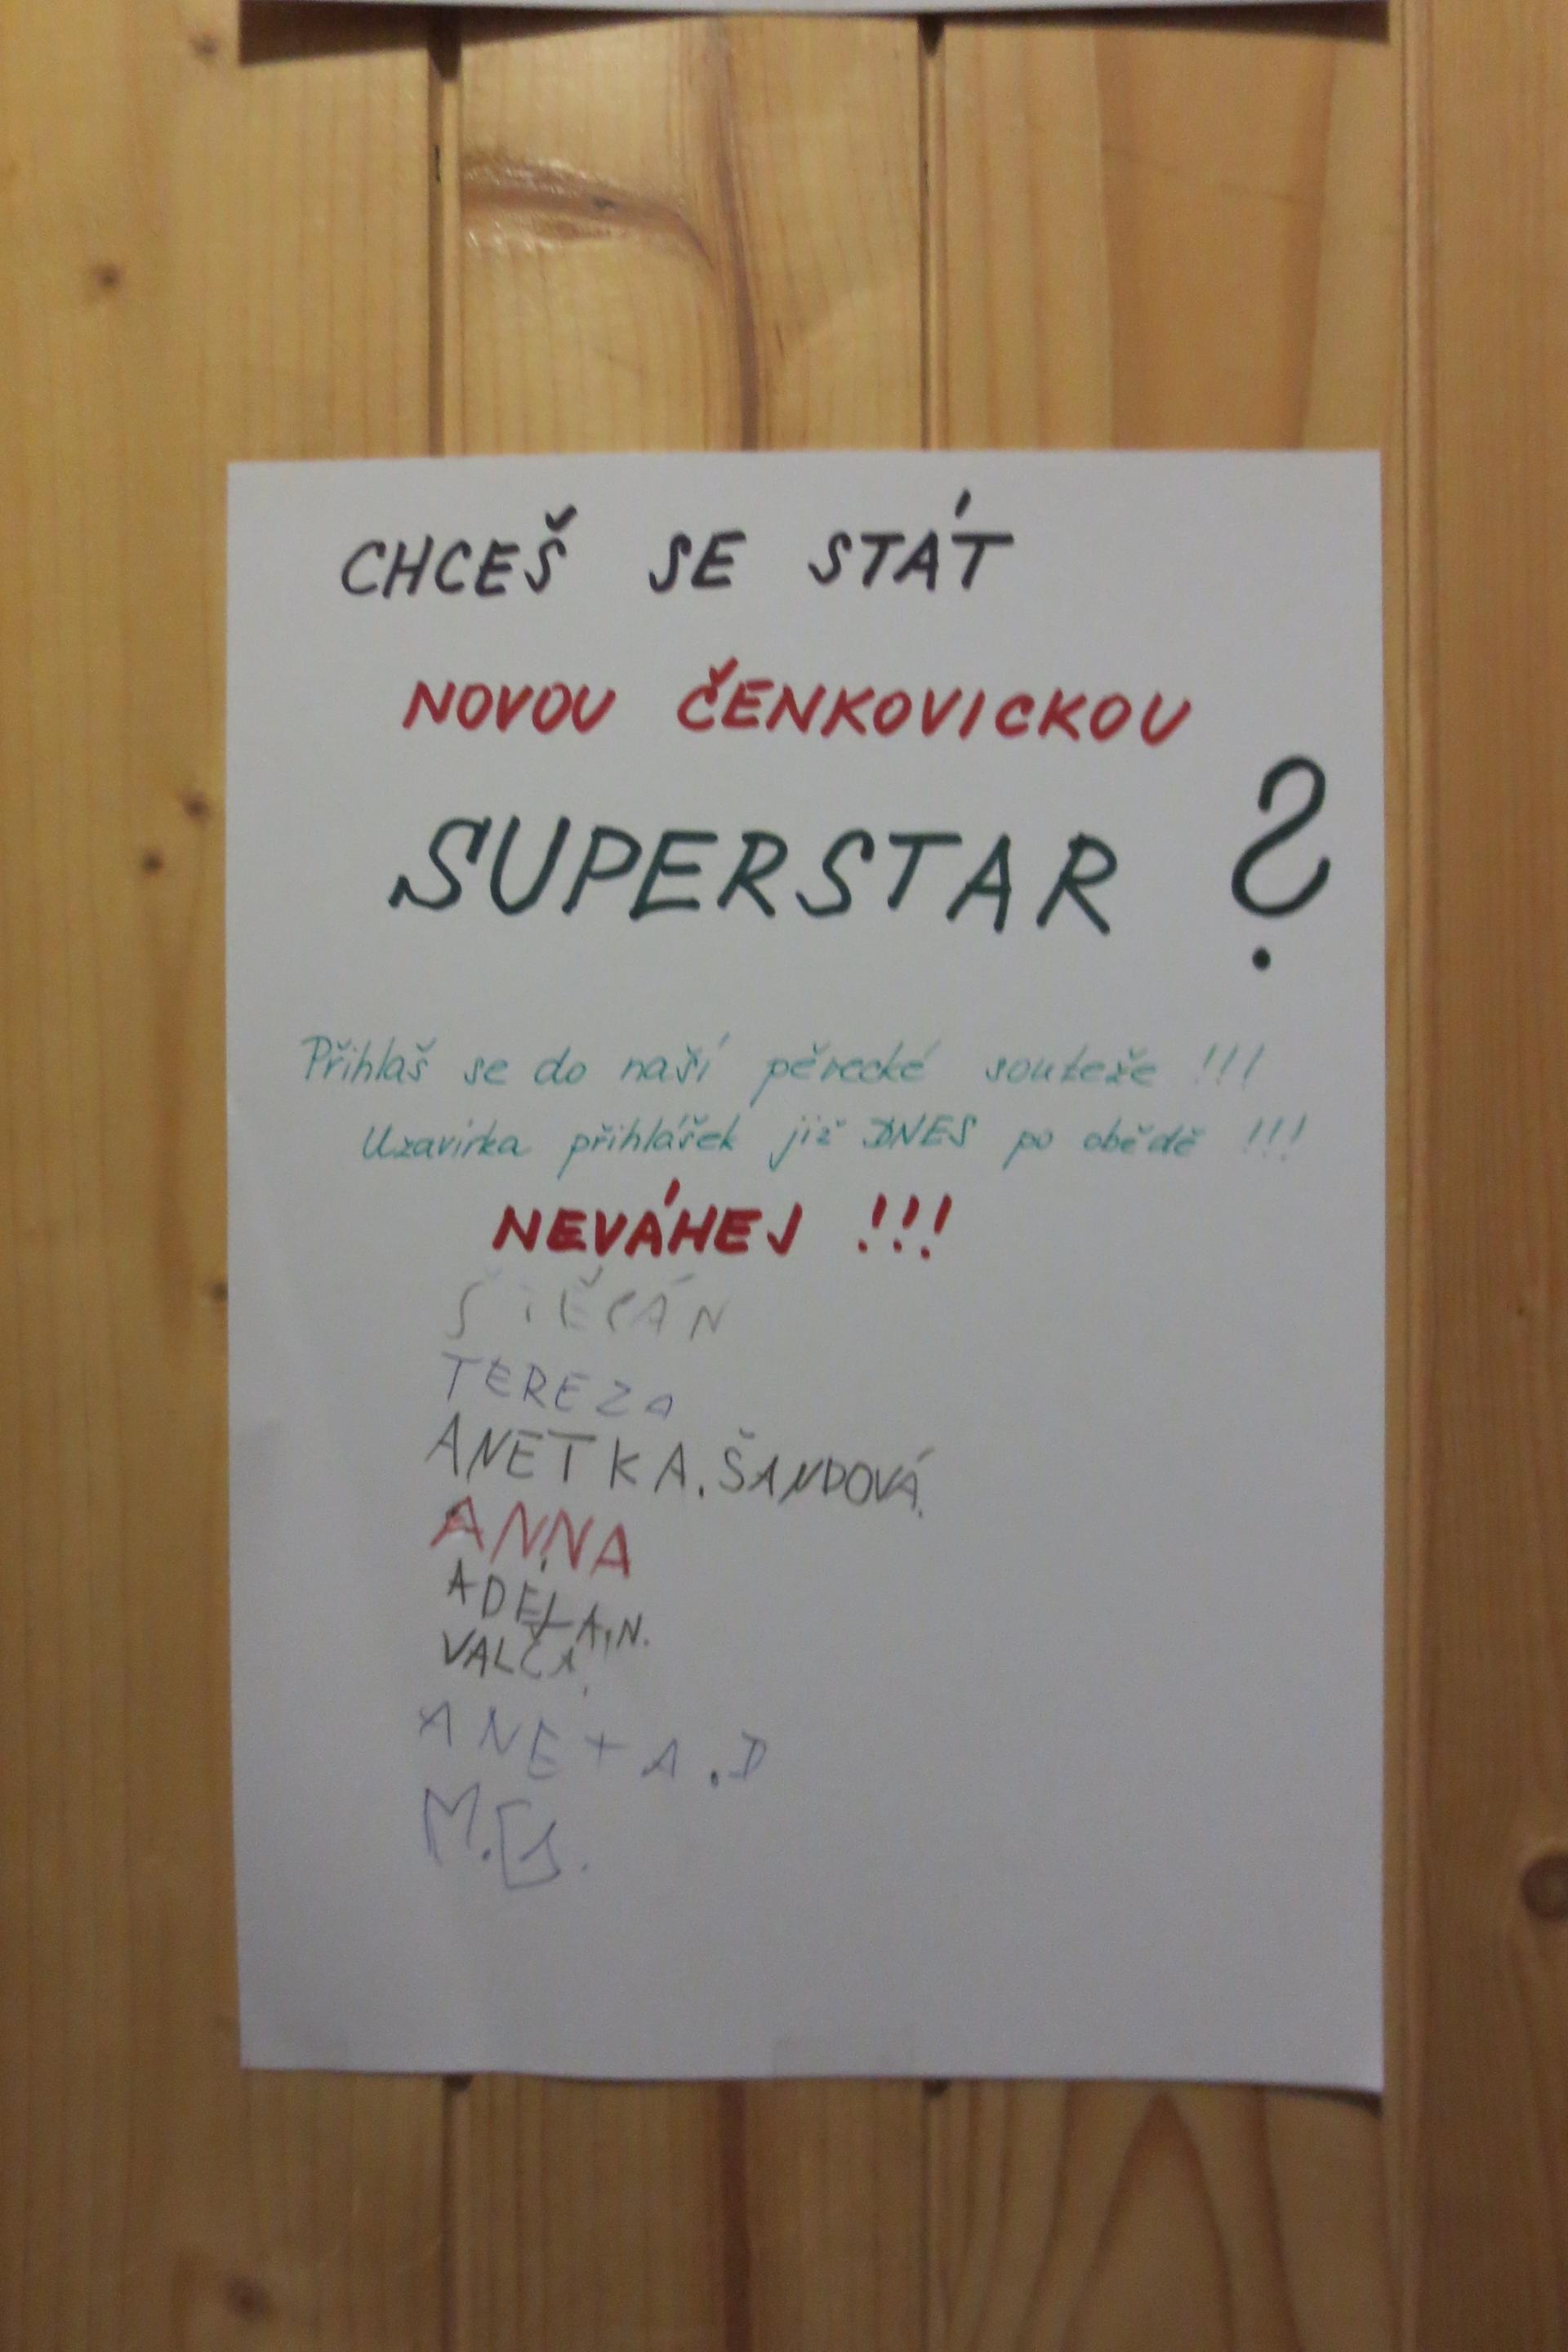 CHCEŠ SE STÁT
NOVOU ČENKOVICKOU
SUPERSTAR ?
Přihlaš se do naší pěvecké souteže !!!
Uzavírka přihlášek již DNES po obědě !!!
NEVÁHEJ !!!
ŠTĚPÁN
TEREZA
ANETKA. ŠANDOVÁ.
ANNA
ADÉLA.N.
VALČA
ANETA.D